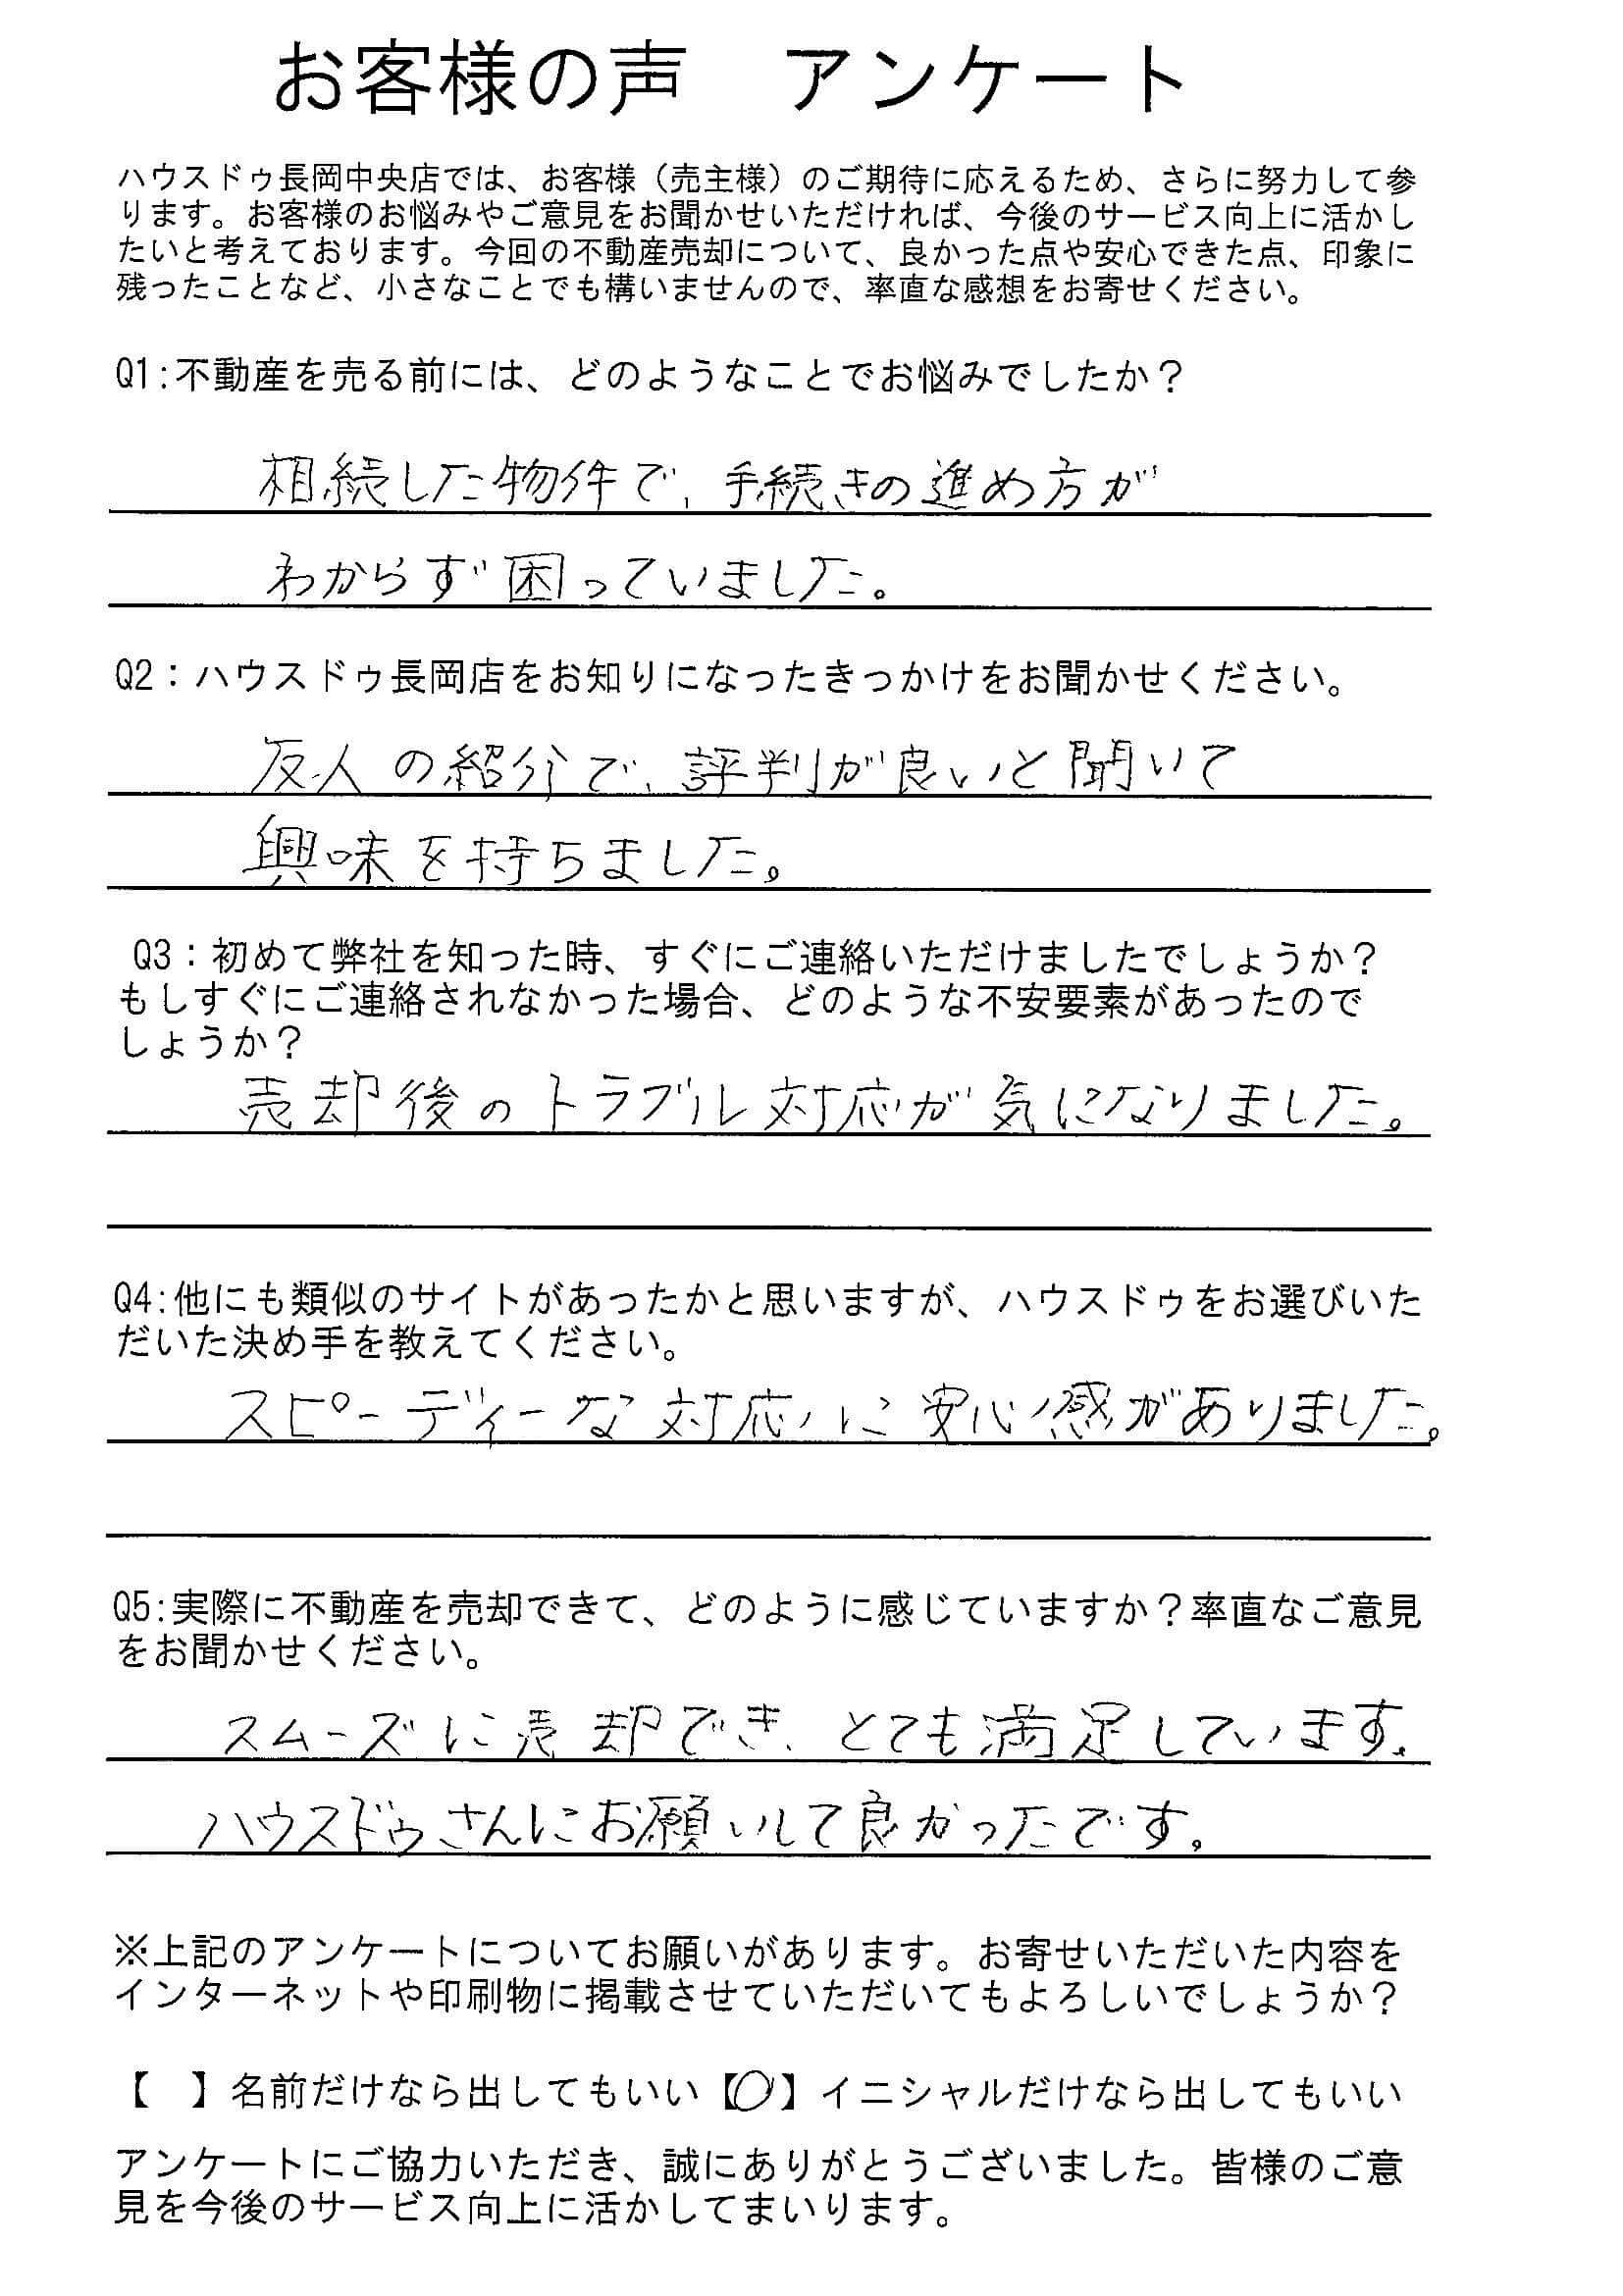 お客様の声　アンケート
ハウスドゥ長岡中央店では、お客様（売主様）のご期待に応えるため、さらに努力して参
ります。お客様のお悩みやご意見をお聞かせいただければ、今後のサービス向上に活かし
たいと考えております。今回の不動産売却について、良かった点や安心できた点、印象に
残ったことなど、小さなことでも構いませんので、率直な感想をお寄せください。
Q1:不動産を売る前には、どのようなことでお悩みでしたか？
相続した物件で、手続きの進め方が
わからず困っていました。
Q2：ハウスドゥ長岡店をお知りになったきっかけをお聞かせください。
友人の紹介で、評判が良いと聞いて
興味を持ちました。
Q3：初めて弊社を知った時、すぐにご連絡いただけましたでしょうか？
もしすぐにご連絡されなかった場合、どのような不安要素があったので
しょうか？
売却後のトラブル対応が気になりました。
Q4:他にも類似のサイトがあったかと思いますが、ハウスドゥをお選びいた
だいた決め手を教えてください。
スピーディーな対応に安心感がありました。
Q5:実際に不動産を売却できて、どのように感じていますか？率直なご意見
をお聞かせください。
スムーズに売却でき、とても満足しています。
ハウスドゥさんにお願いして良かったです。
※上記のアンケートについてお願いがあります。お寄せいただいた内容を
インターネットや印刷物に掲載させていただいてもよろしいでしょうか？
【　】名前だけなら出してもいい【○】イニシャルだけなら出してもいい
アンケートにご協力いただき、誠にありがとうございました。皆様のご意
見を今後のサービス向上に活かしてまいります。